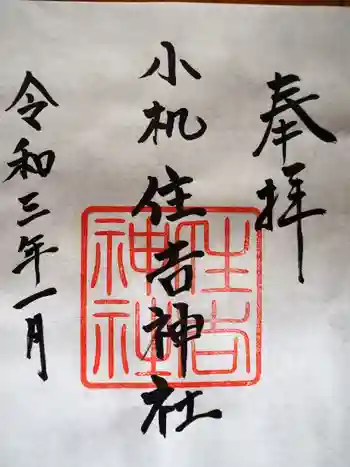 奉拝
小机住吉神社
住吉神社
令和三年一月